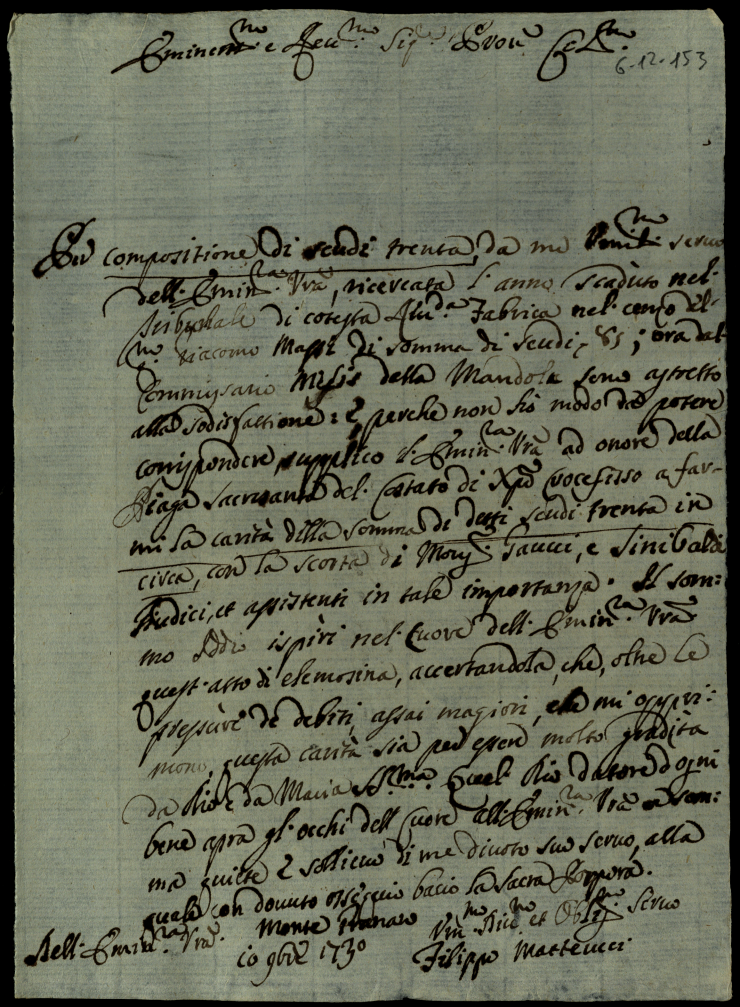 Eminent.mo e Rev.mo Sig.re Pron.e Col.mo
6-12-153
Per compositione di scudi trenta, da me Umil.mo servo
dell'Emin.za Vrã, ricercata l'anno scaduto nel
Tribunale di cotesta Rev.da Fabrica nel censo del
Giacomo Massi di somma di scudi 85; ora dal
Commissario della Mandola sono astretto
alla sodisfattione: E perche non hò modo da potere
corrispondere, supplico l'Emin.za Vrã ad onore della
Piaga sacrosanta del Costato di Xpõ Crocefisso a far-
mi la carità della somma di detti scudi trenta in
circa, con la scorta di Mons. Saucci, e Sinibaldi
Giudici, et assistenti in tale importanza. Il som:
mo Iddio ispiri nel Cuore dell'Emin.za Vrã
quest'atto di elemosina, accertandola, che, oltre le
pressure de debiti, assai magiori, che mi oppri:
mono, questa carità sia per essere molto gradita
da Dio e da Maria SS.ma. Quel Dio datore d'ogni
bene apra gl'occhi dell Cuore all'Emin.za Vrã a som:
ma quiete e sollievo di me divoto suo servo, alla
quale con dovuto ossequio bacio la Sacra Porpora.
Dell'Emin.za Vrã. Monte Granaro Um.mo Div.mo et Oblig.mo Servo
10 9bre 1730 Filippo Matteucci